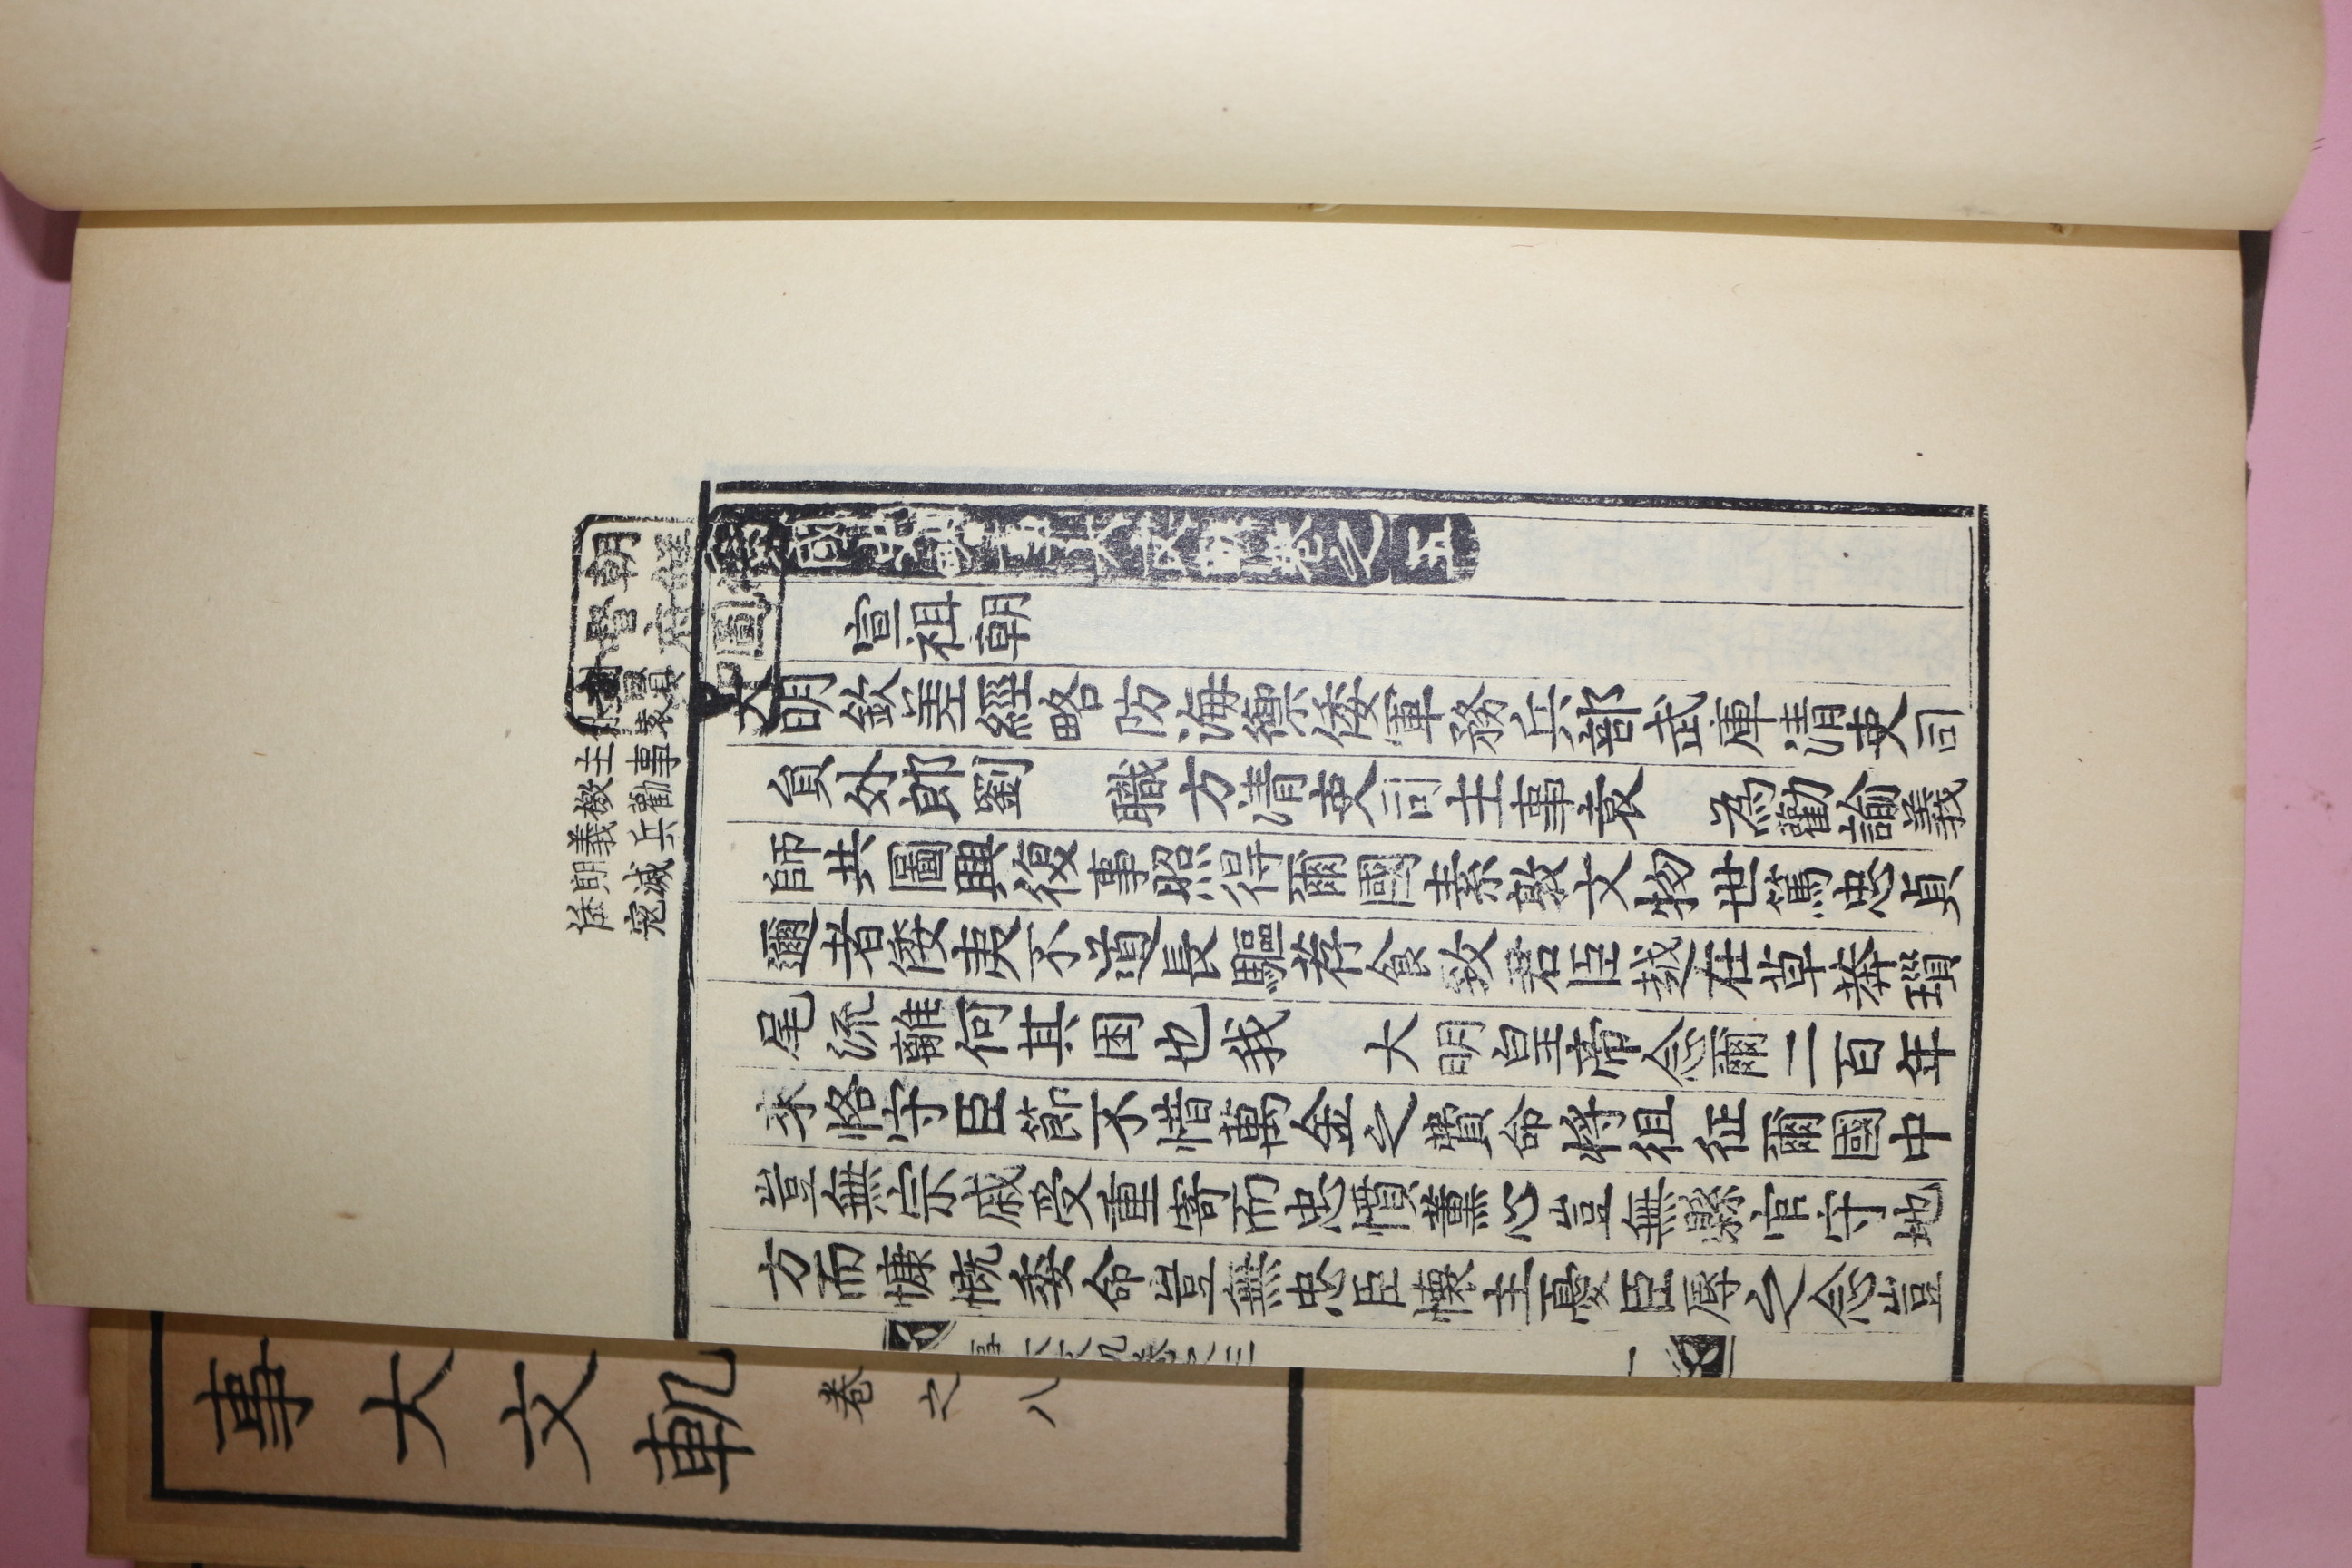 朝鮮總
督府圖
書
袁
主事
檄勸
義兵
期滅
倭寇
國
事大文軌卷之五
宣祖朝
大明欽差經略防海禦倭軍務兵部武庫清吏司
員外郎劉 職方清吏司主事袁 為勸諭義
師共圖興復事照得爾國素敦文物世篤忠貞
邇者倭夷不道長驅荐食致君臣越在草莽瑣
尾流離何其困也我 大明皇帝念爾二百年
來恪守臣節不惜萬金之費命將徂征爾國中
豈無宗戚受重寄而忠憤薰心豈無縣官守地
方而慷慨委命豈無忠臣懷主憂臣辱之念豈
事大文軌卷之三
一
事大文軌
卷之八